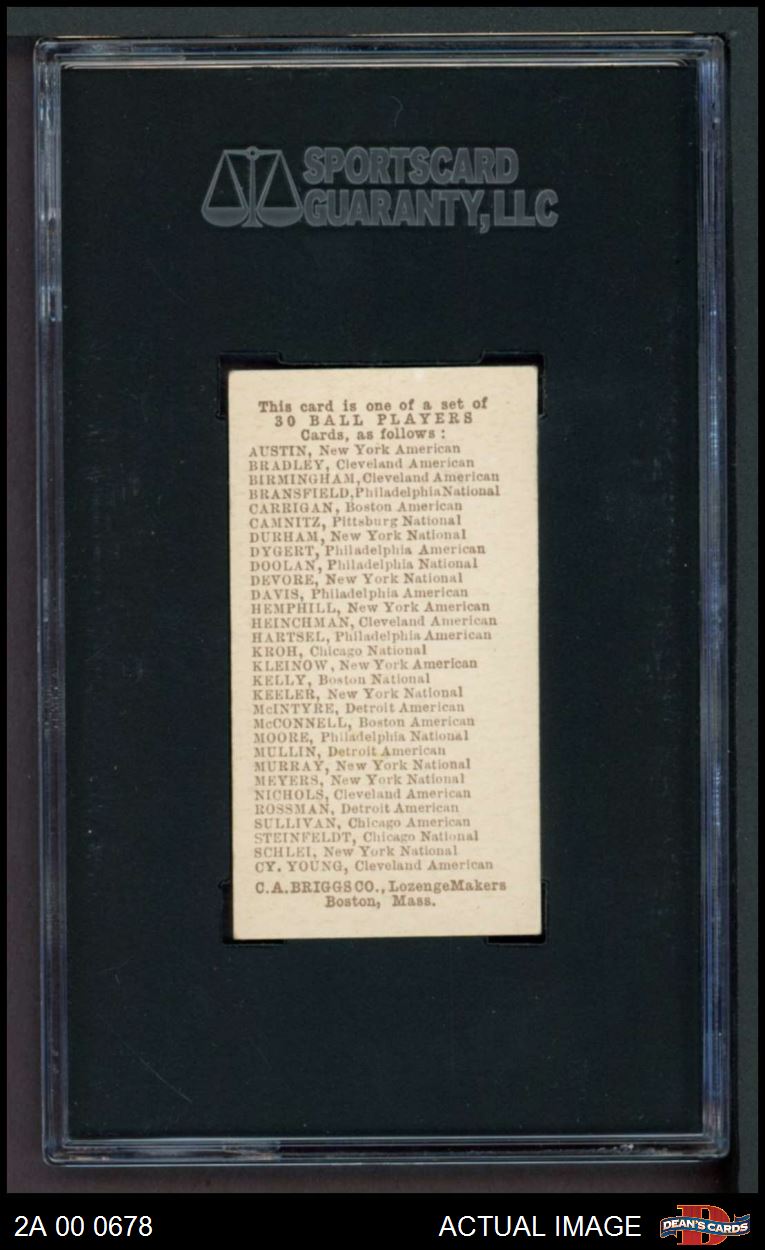 SPORTSCARD
GUARANTY, LLC
This card is one of a set of
30 BALL PLAYERS
Cards, as follows:
AUSTIN, New York American
BRADLEY, Cleveland American
BIRMINGHAM, Cleveland American
BRANSFIELD, Philadelphia National
CARRIGAN, Boston American
CAMNITZ, Pittsburg National
DURHAM, New York National
DYGERT, Philadelphia American
DOOLAN, Philadelphia National
DEVORE, New York National
DAVIS, Philadelphia American
HEMPHILL, New York American
HEINCHMAN, Cleveland American
HARTSEL, Philadelphia American
KROH, Chicago National
KLEINOW, New York American
KELLY, Boston National
KEELER, New York National
McINTYRE, Detroit American
McCONNELL, Boston American
MOORE, Philadelphia National
MULLIN, Detroit American
MURRAY, New York National
MEYERS, New York National
NICHOLS, Cleveland American
ROSSMAN, Detroit American
SULLIVAN, Chicago American
STEINFELDT, Chicago National
SCHLEI, New York National
CY. YOUNG, Cleveland American
C.A. BRIGGS CO., Lozenge Makers
Boston, Mass.
2A 00 0678
ACTUAL IMAGE
DEAN'S CARDS